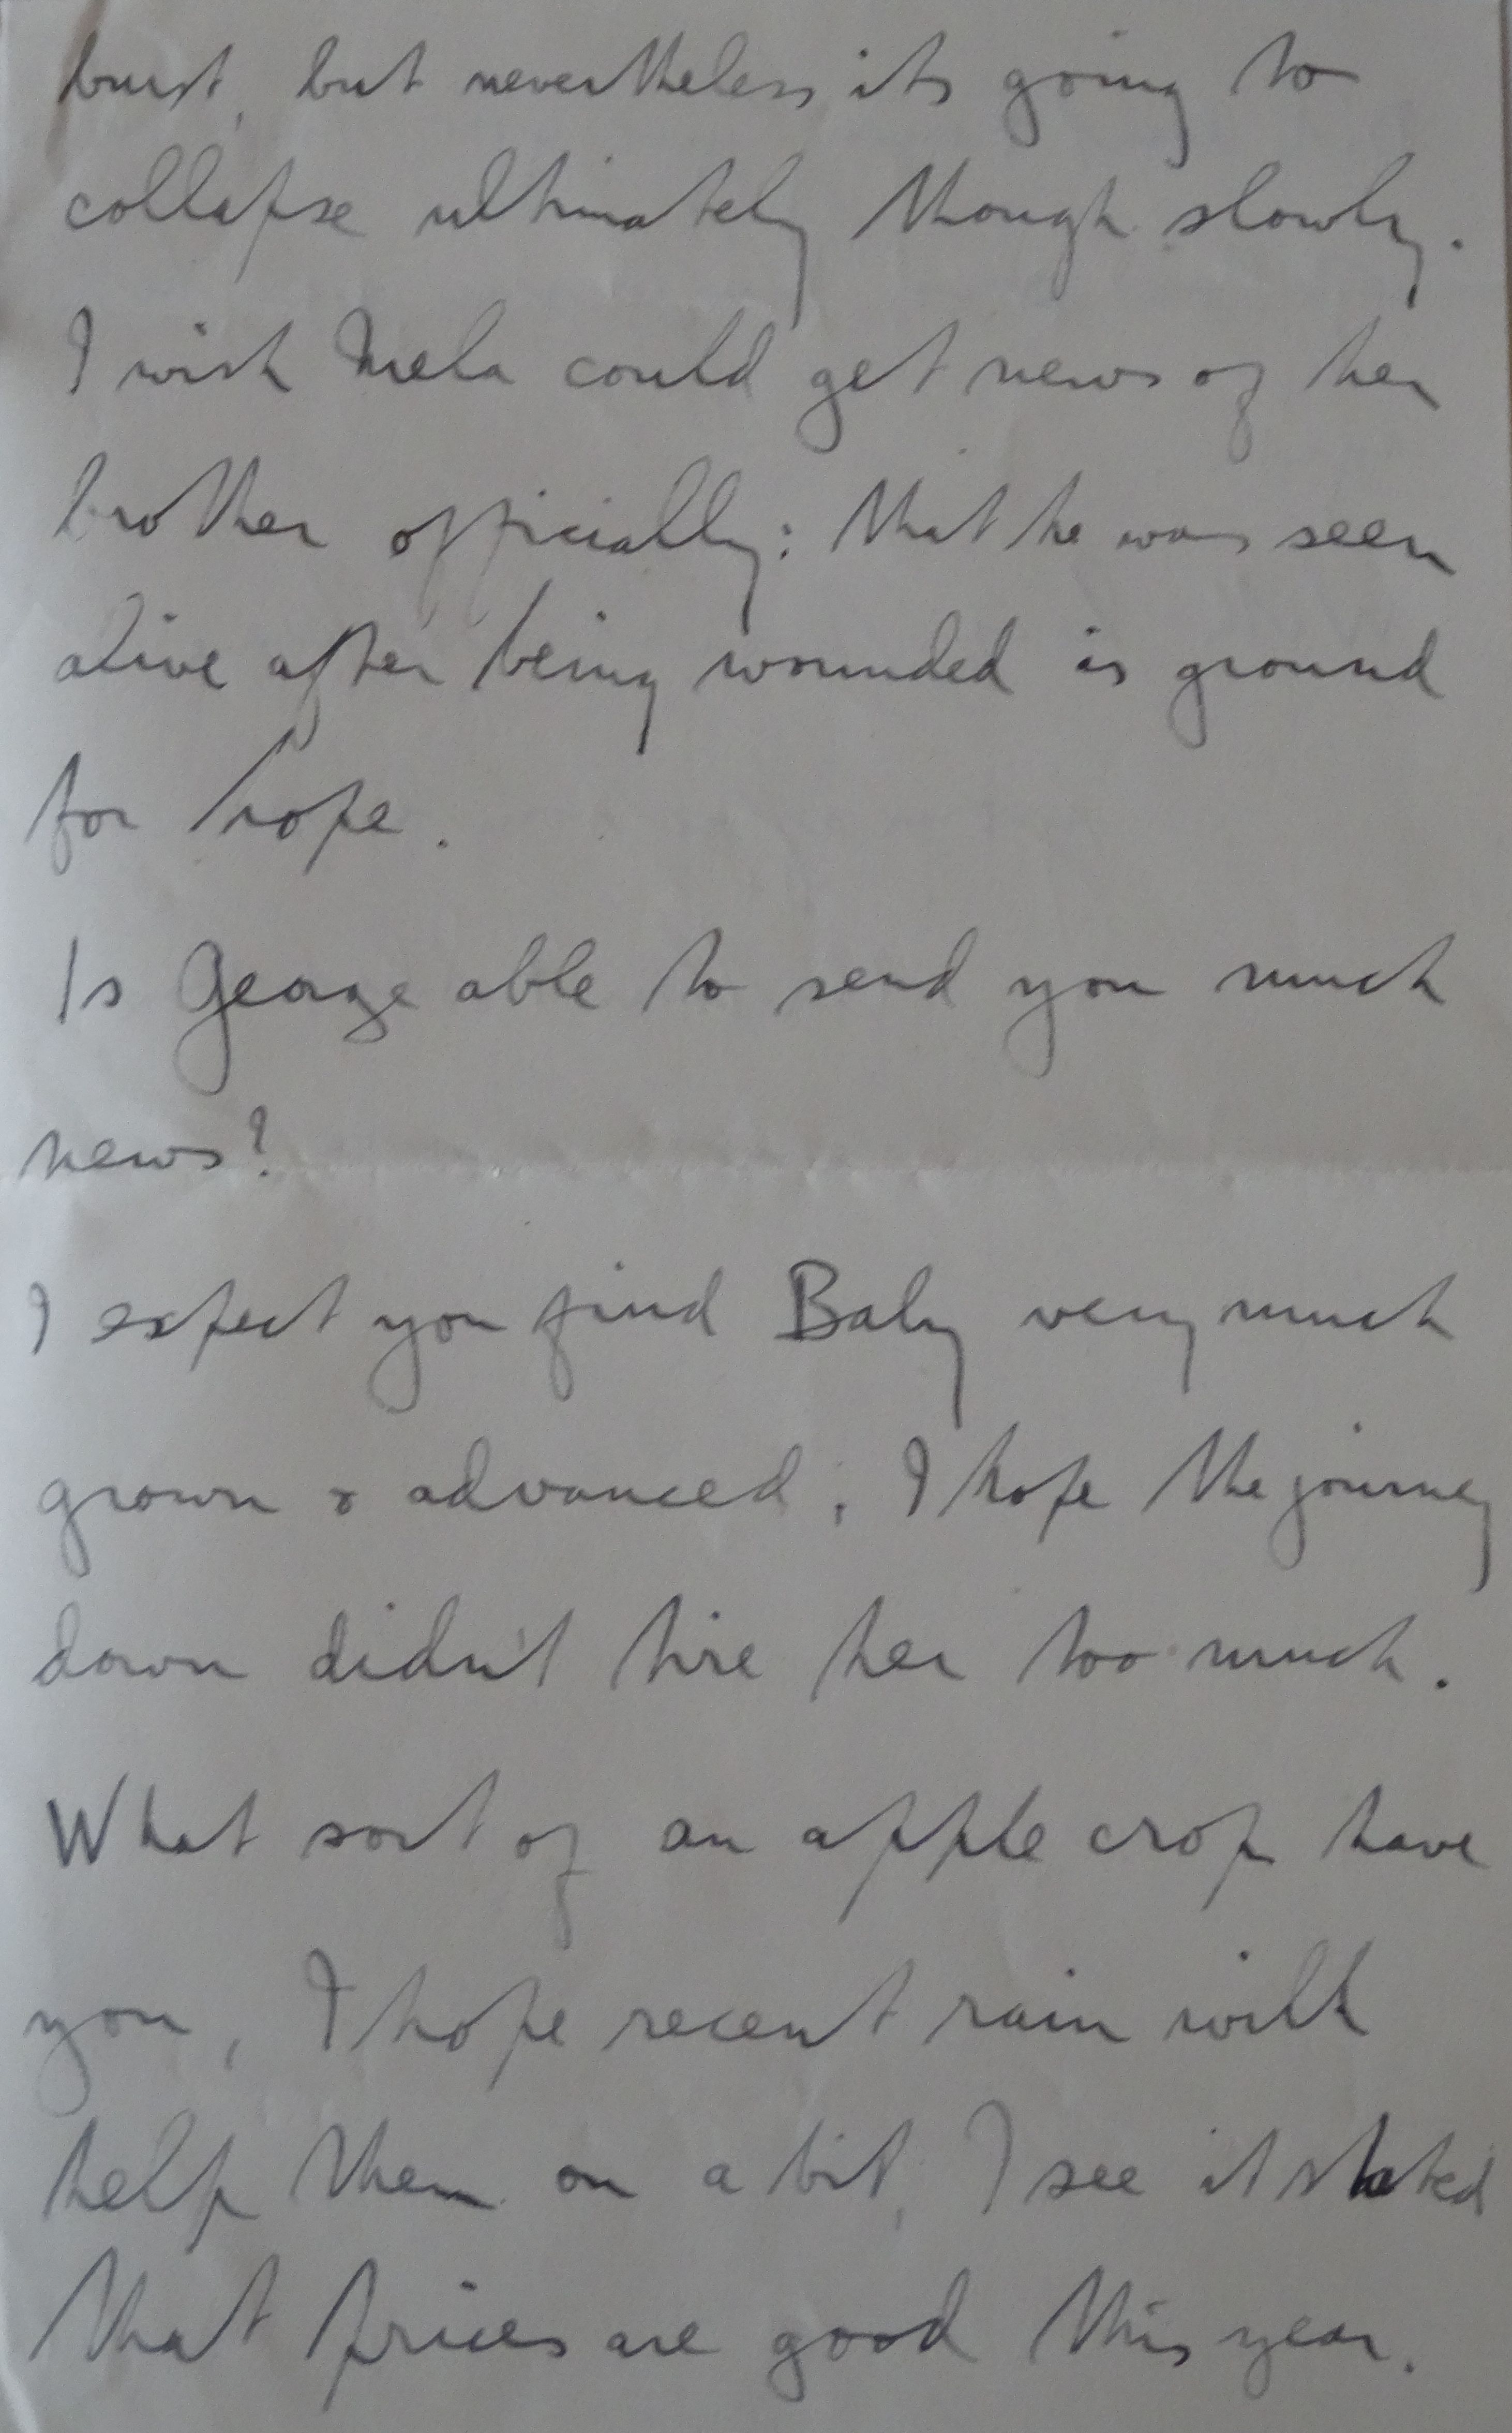 burst, but nevertheless its going to
collapse ultimately though slowly.
I wish Mela could get news of her
brother officially: that he was seen
alive after being wounded is ground
for hope.
Is George able to send you much
news?
I expect you find Baby very much
grown & advanced; I hope the journey
down didn't tire her too much.
What sort of an apple crop have
you, I hope recent rain will
help them on a bit, I see it stated
that prices are good this year.